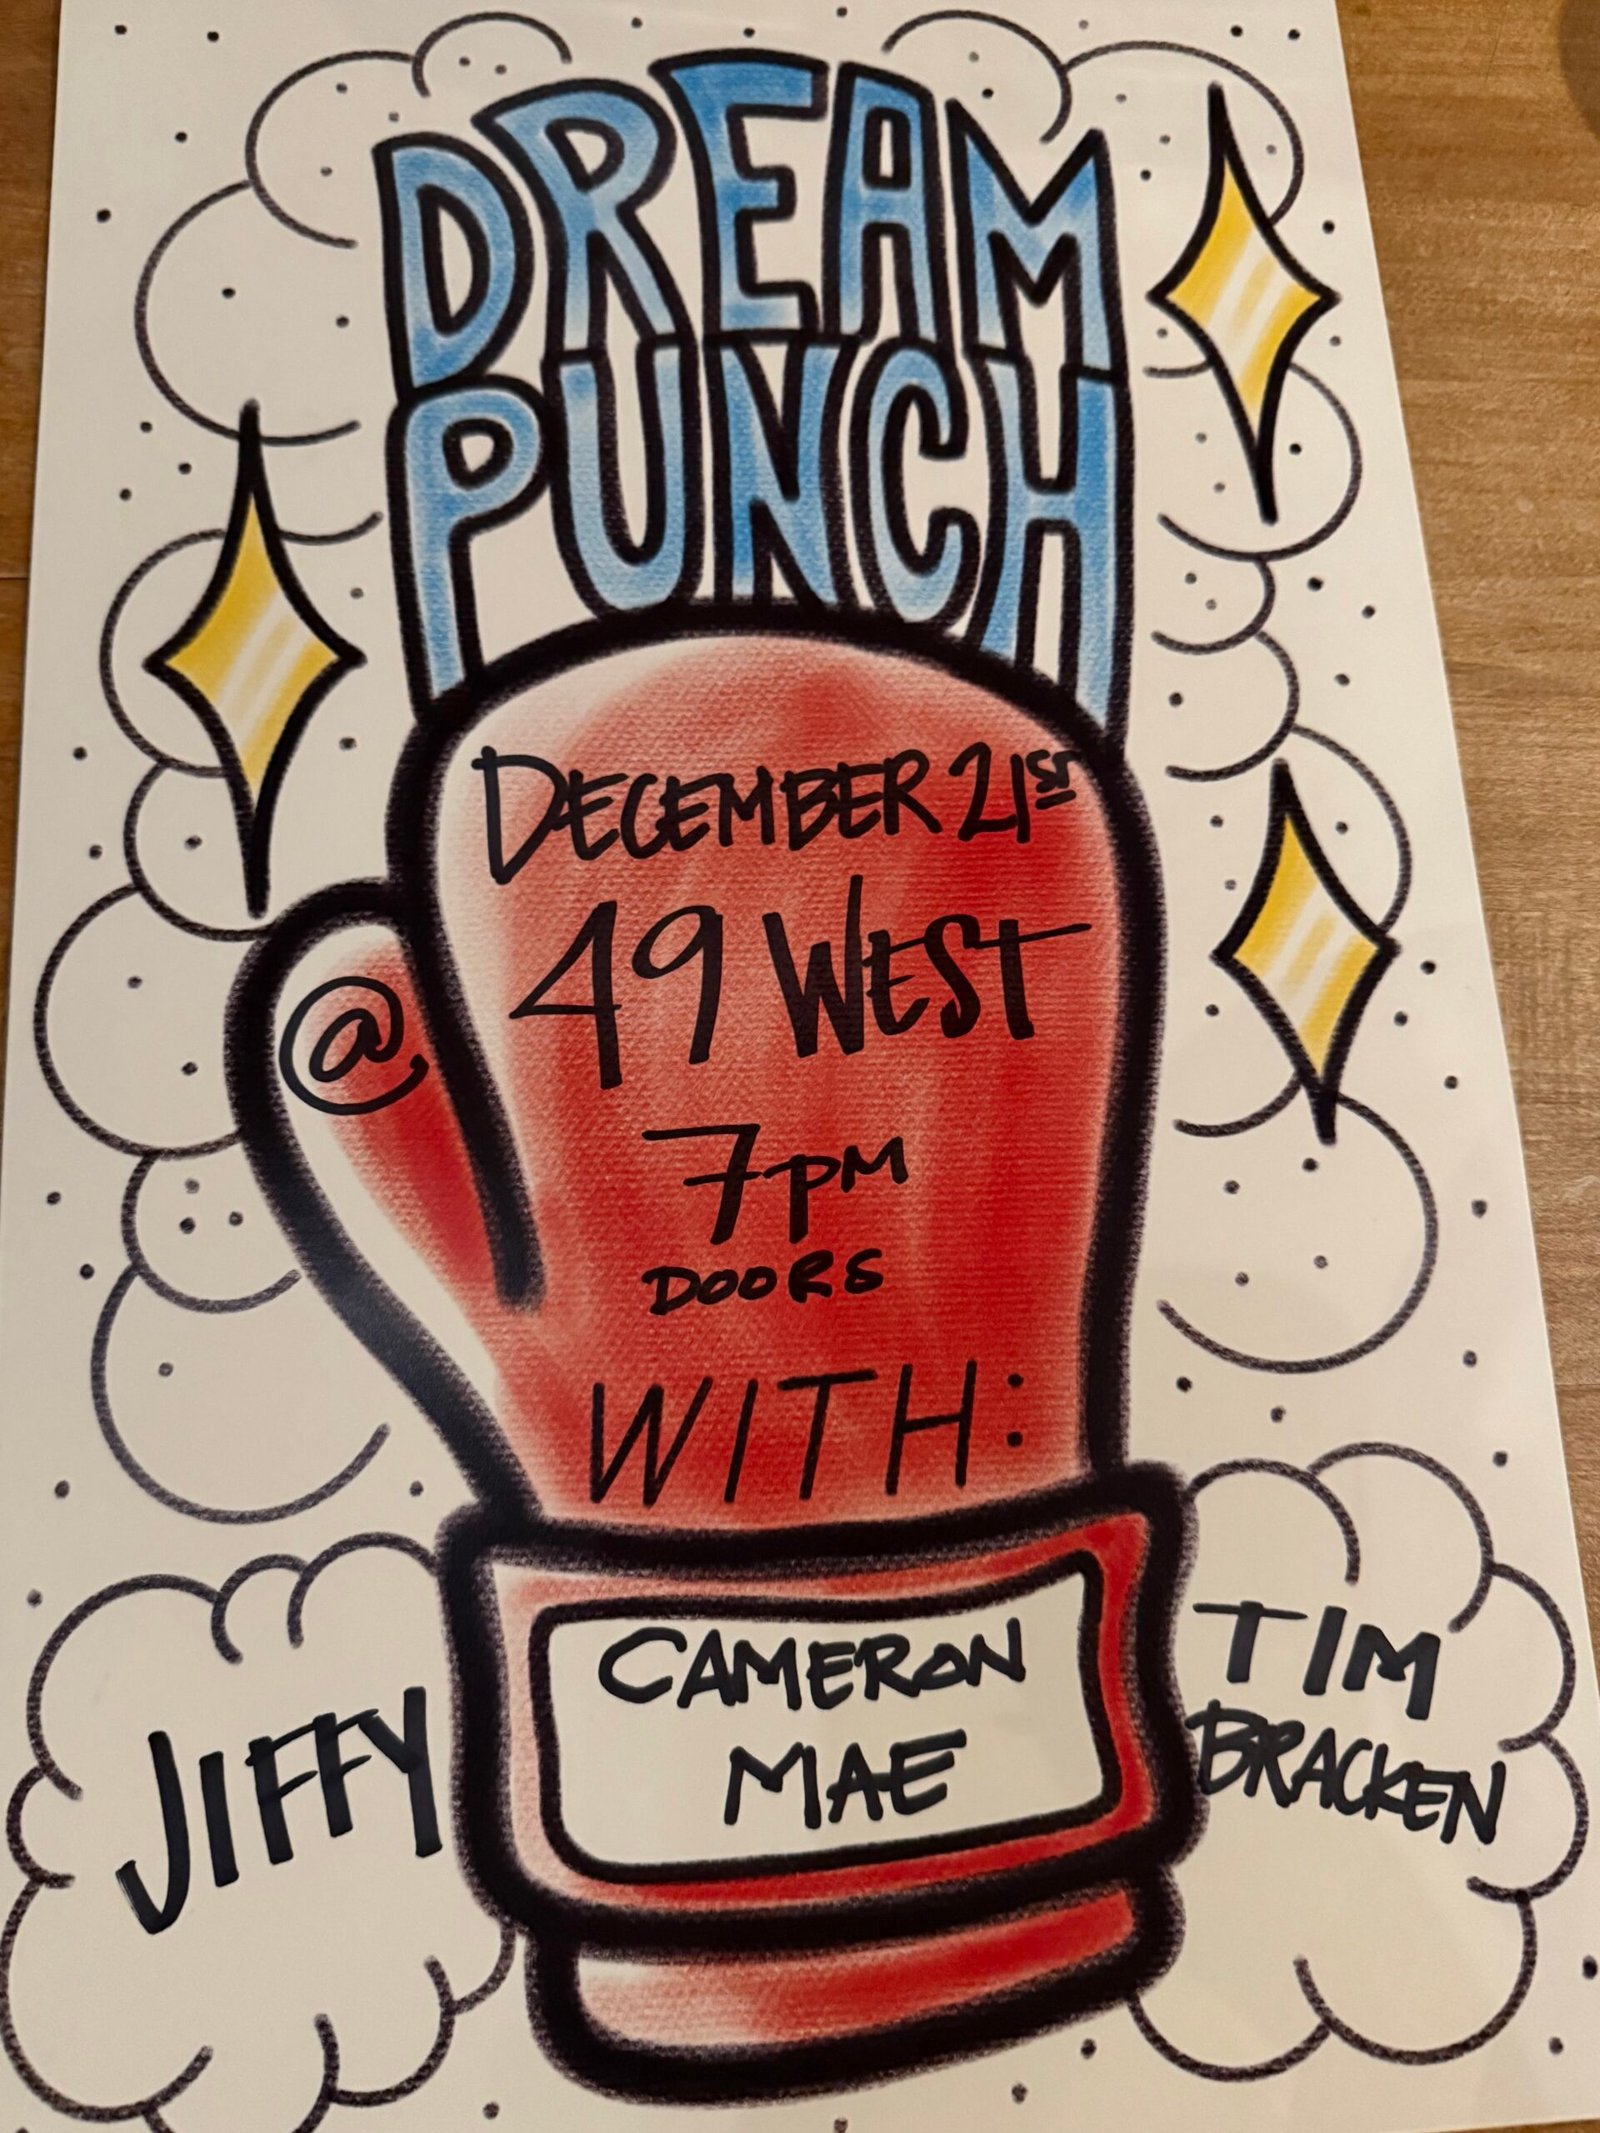 DREAM
PUNCH
DECEMBER 21ST
@ 49 WEST
7PM
DOORS
WITH:
JIFFY
CAMERON
MAE
TIM
BRACKEN